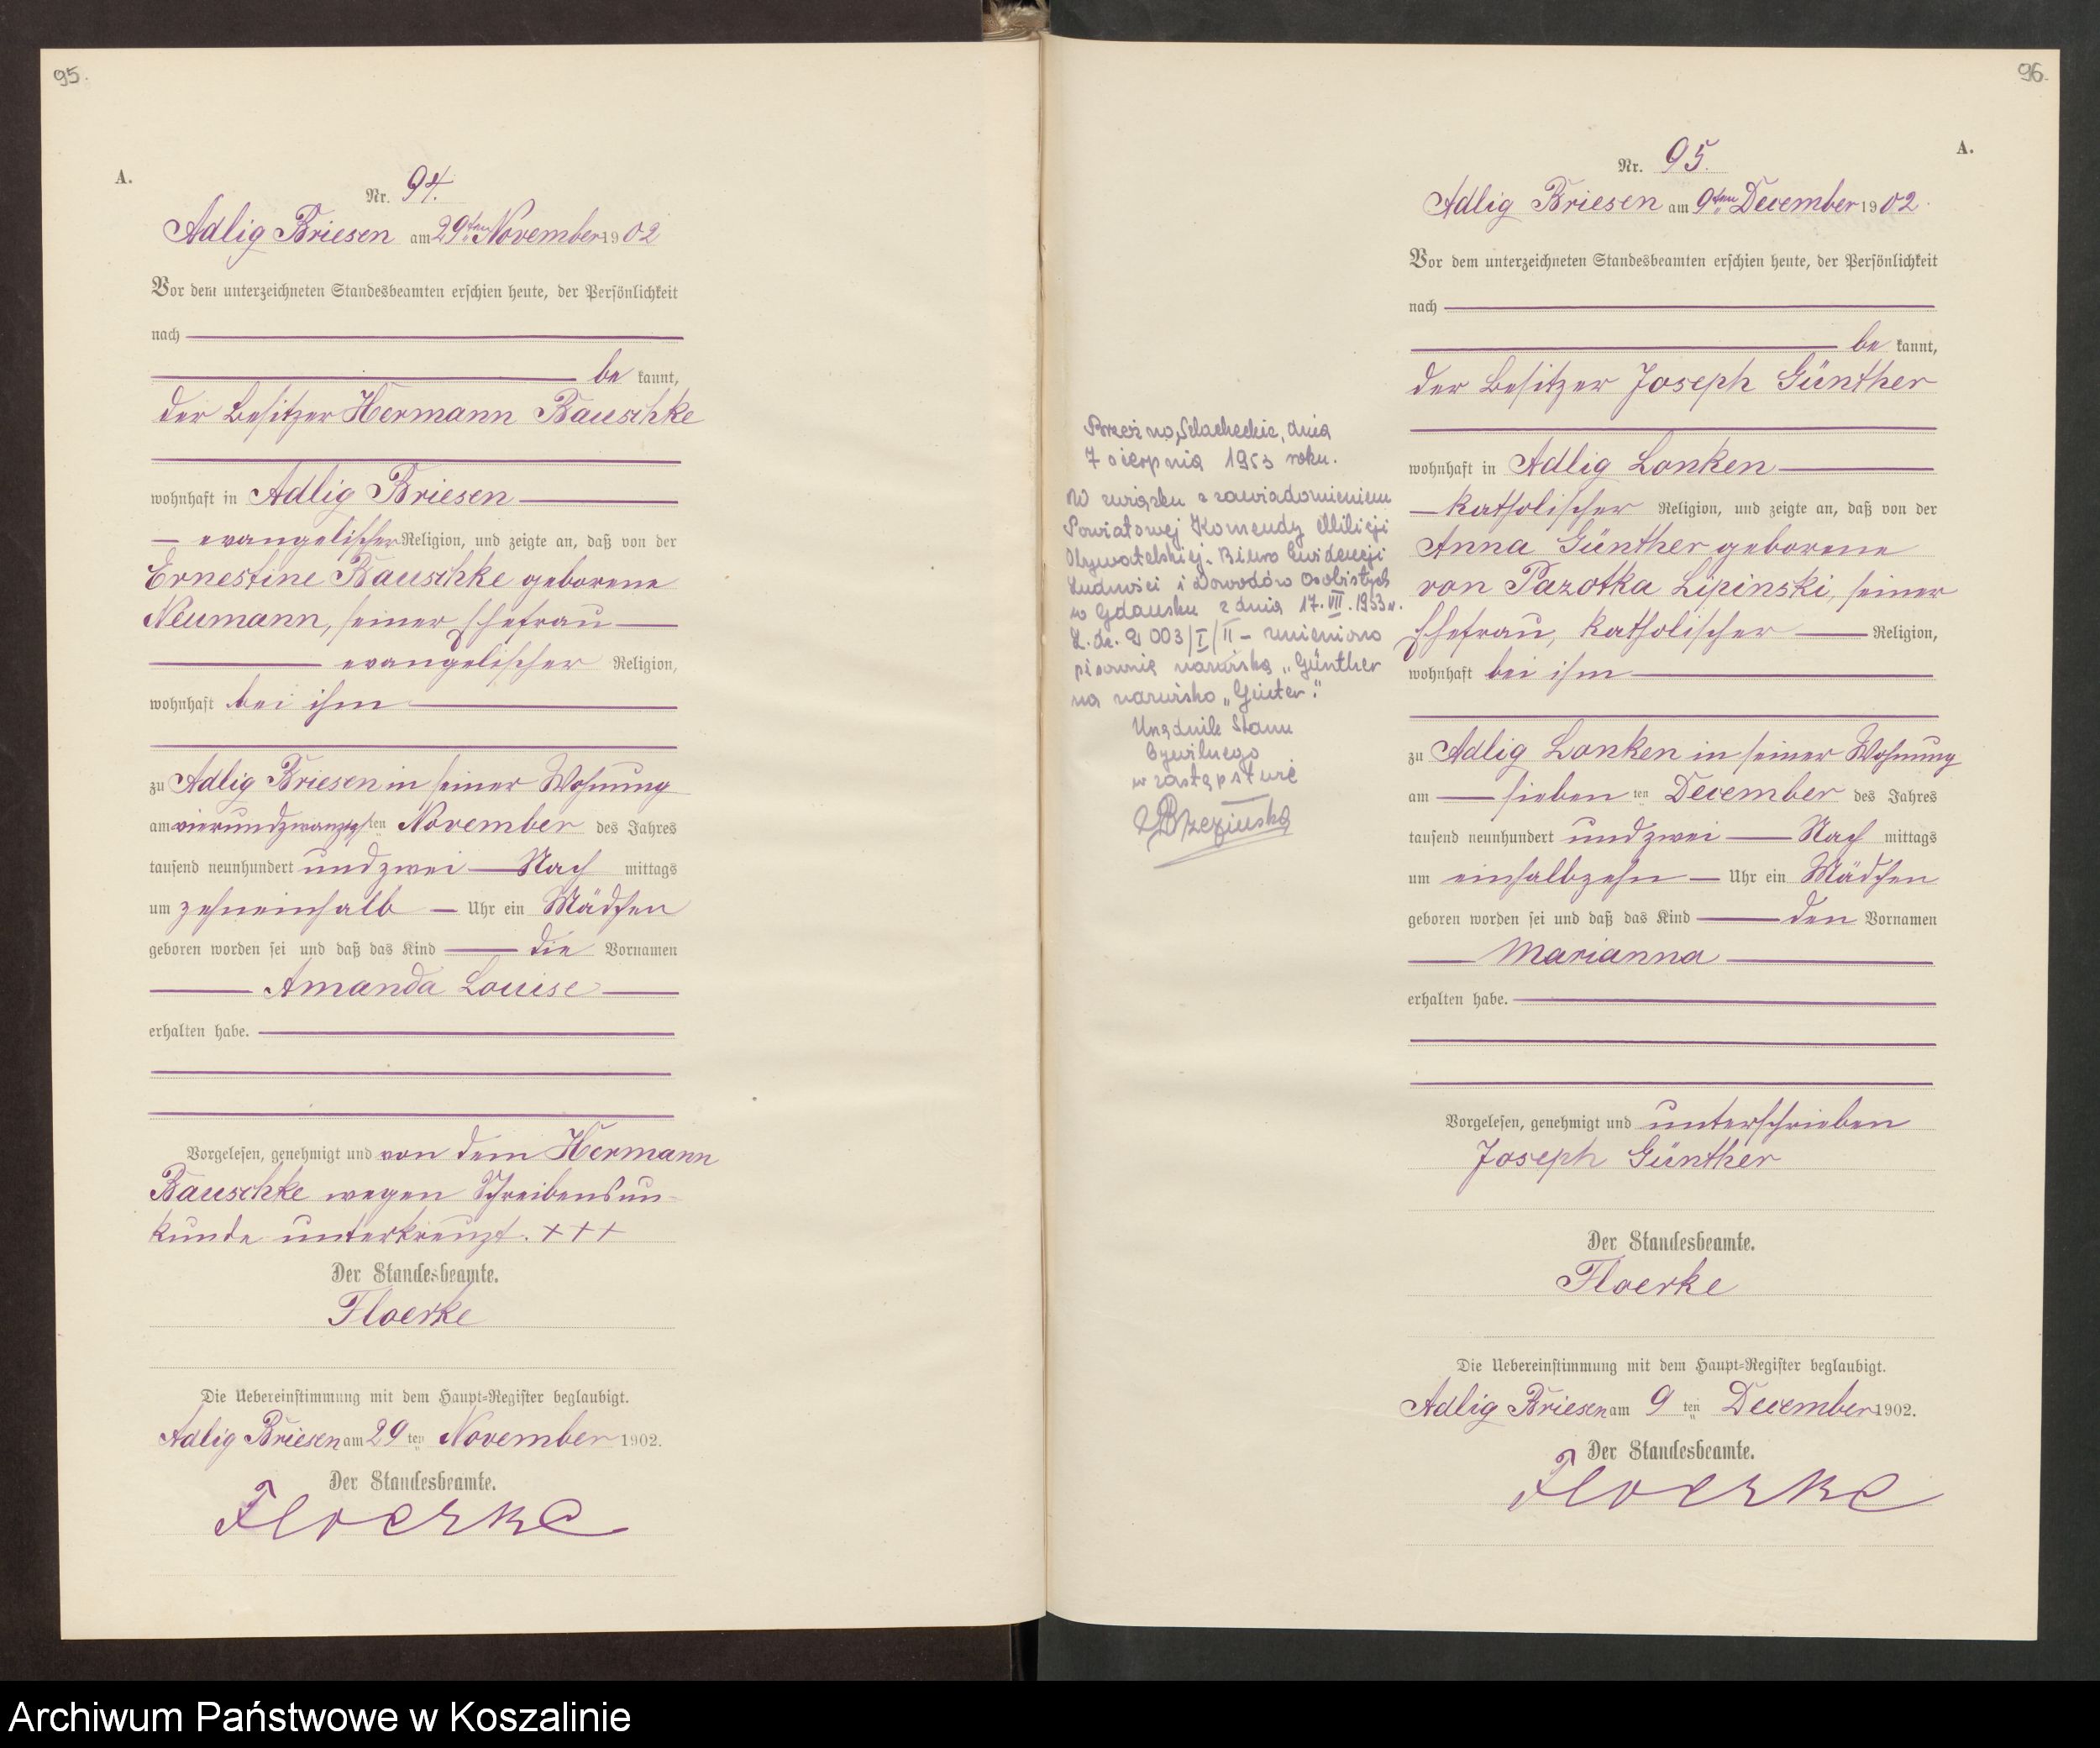 95.
A.
Nr. 94.
Adlig Briesen am 29ten November 1902
Vor dem unterzeichneten Standesbeamten erschien heute, der Persönlichkeit
nach
be kannt,
der Besitzer Hermann Bauschke
wohnhaft in Adlig Briesen
evangelischer Religion, und zeigte an, daß von der
Ernestine Bauschke geborene
Neumann, seiner Ehefrau
evangelischer Religion,
wohnhaft bei ihm
zu Adlig Briesen in seiner Wohnung
am vierundzwanzigsten November des Jahres
tausend neunhundert und zwei Nach mittags
um zehneinhalb Uhr ein Mädchen
geboren worden sei und daß das Kind die Vornamen
Amanda Louise
erhalten habe.
Vorgelesen, genehmigt und von dem Hermann
Bauschke wegen Schreibensun-
kunde unterkreuzt. +++
Der Standesbeamte.
Floerke
Die Uebereinstimmung mit dem Haupt-Register beglaubigt.
Adlig Briesen am 29 ten November 1902.
Der Standesbeamte.
Floerke
96.
A.
Nr. 95.
Adlig Briesen am 9ten December 1902.
Vor dem unterzeichneten Standesbeamten erschien heute, der Persönlichkeit
nach
be kannt,
der Besitzer Joseph Günther
wohnhaft in Adlig Lonken
katholischer Religion, und zeigte an, daß von der
Anna Günther geborene
von Pazotka Lipinski, seiner
Ehefrau, katholischer Religion,
wohnhaft bei ihm
zu Adlig Lonken in seiner Wohnung
am sieben ten December des Jahres
tausend neunhundert und zwei Nach mittags
um einhalbzehn Uhr ein Mädchen
geboren worden sei und daß das Kind den Vornamen
Marianna
erhalten habe.
Vorgelesen, genehmigt und unterschrieben
Joseph Günther
Der Standesbeamte.
Floerke
Die Uebereinstimmung mit dem Haupt-Register beglaubigt.
Adlig Briesen am 9 ten December 1902.
Der Standesbeamte.
Floerke
Brzeźno Szlacheckie, dnia
7 sierpnia 1953 roku.
W związku z zawiadomieniem
Powiatowej Komendy Milicji
Obywatelskiej. Biuro Ewidencji
Ludności i Dowodów Osobistych
w Gdańsku z dnia 17. VII. 1953 r.
003/I/II – zmieniono
pisownię nazwiska „Günther
na nazwisko „Ginter".
Urzędnik Stanu
Cywilnego
w zastępstwie
Brzezińska
Archiwum Państwowe w Koszalinie